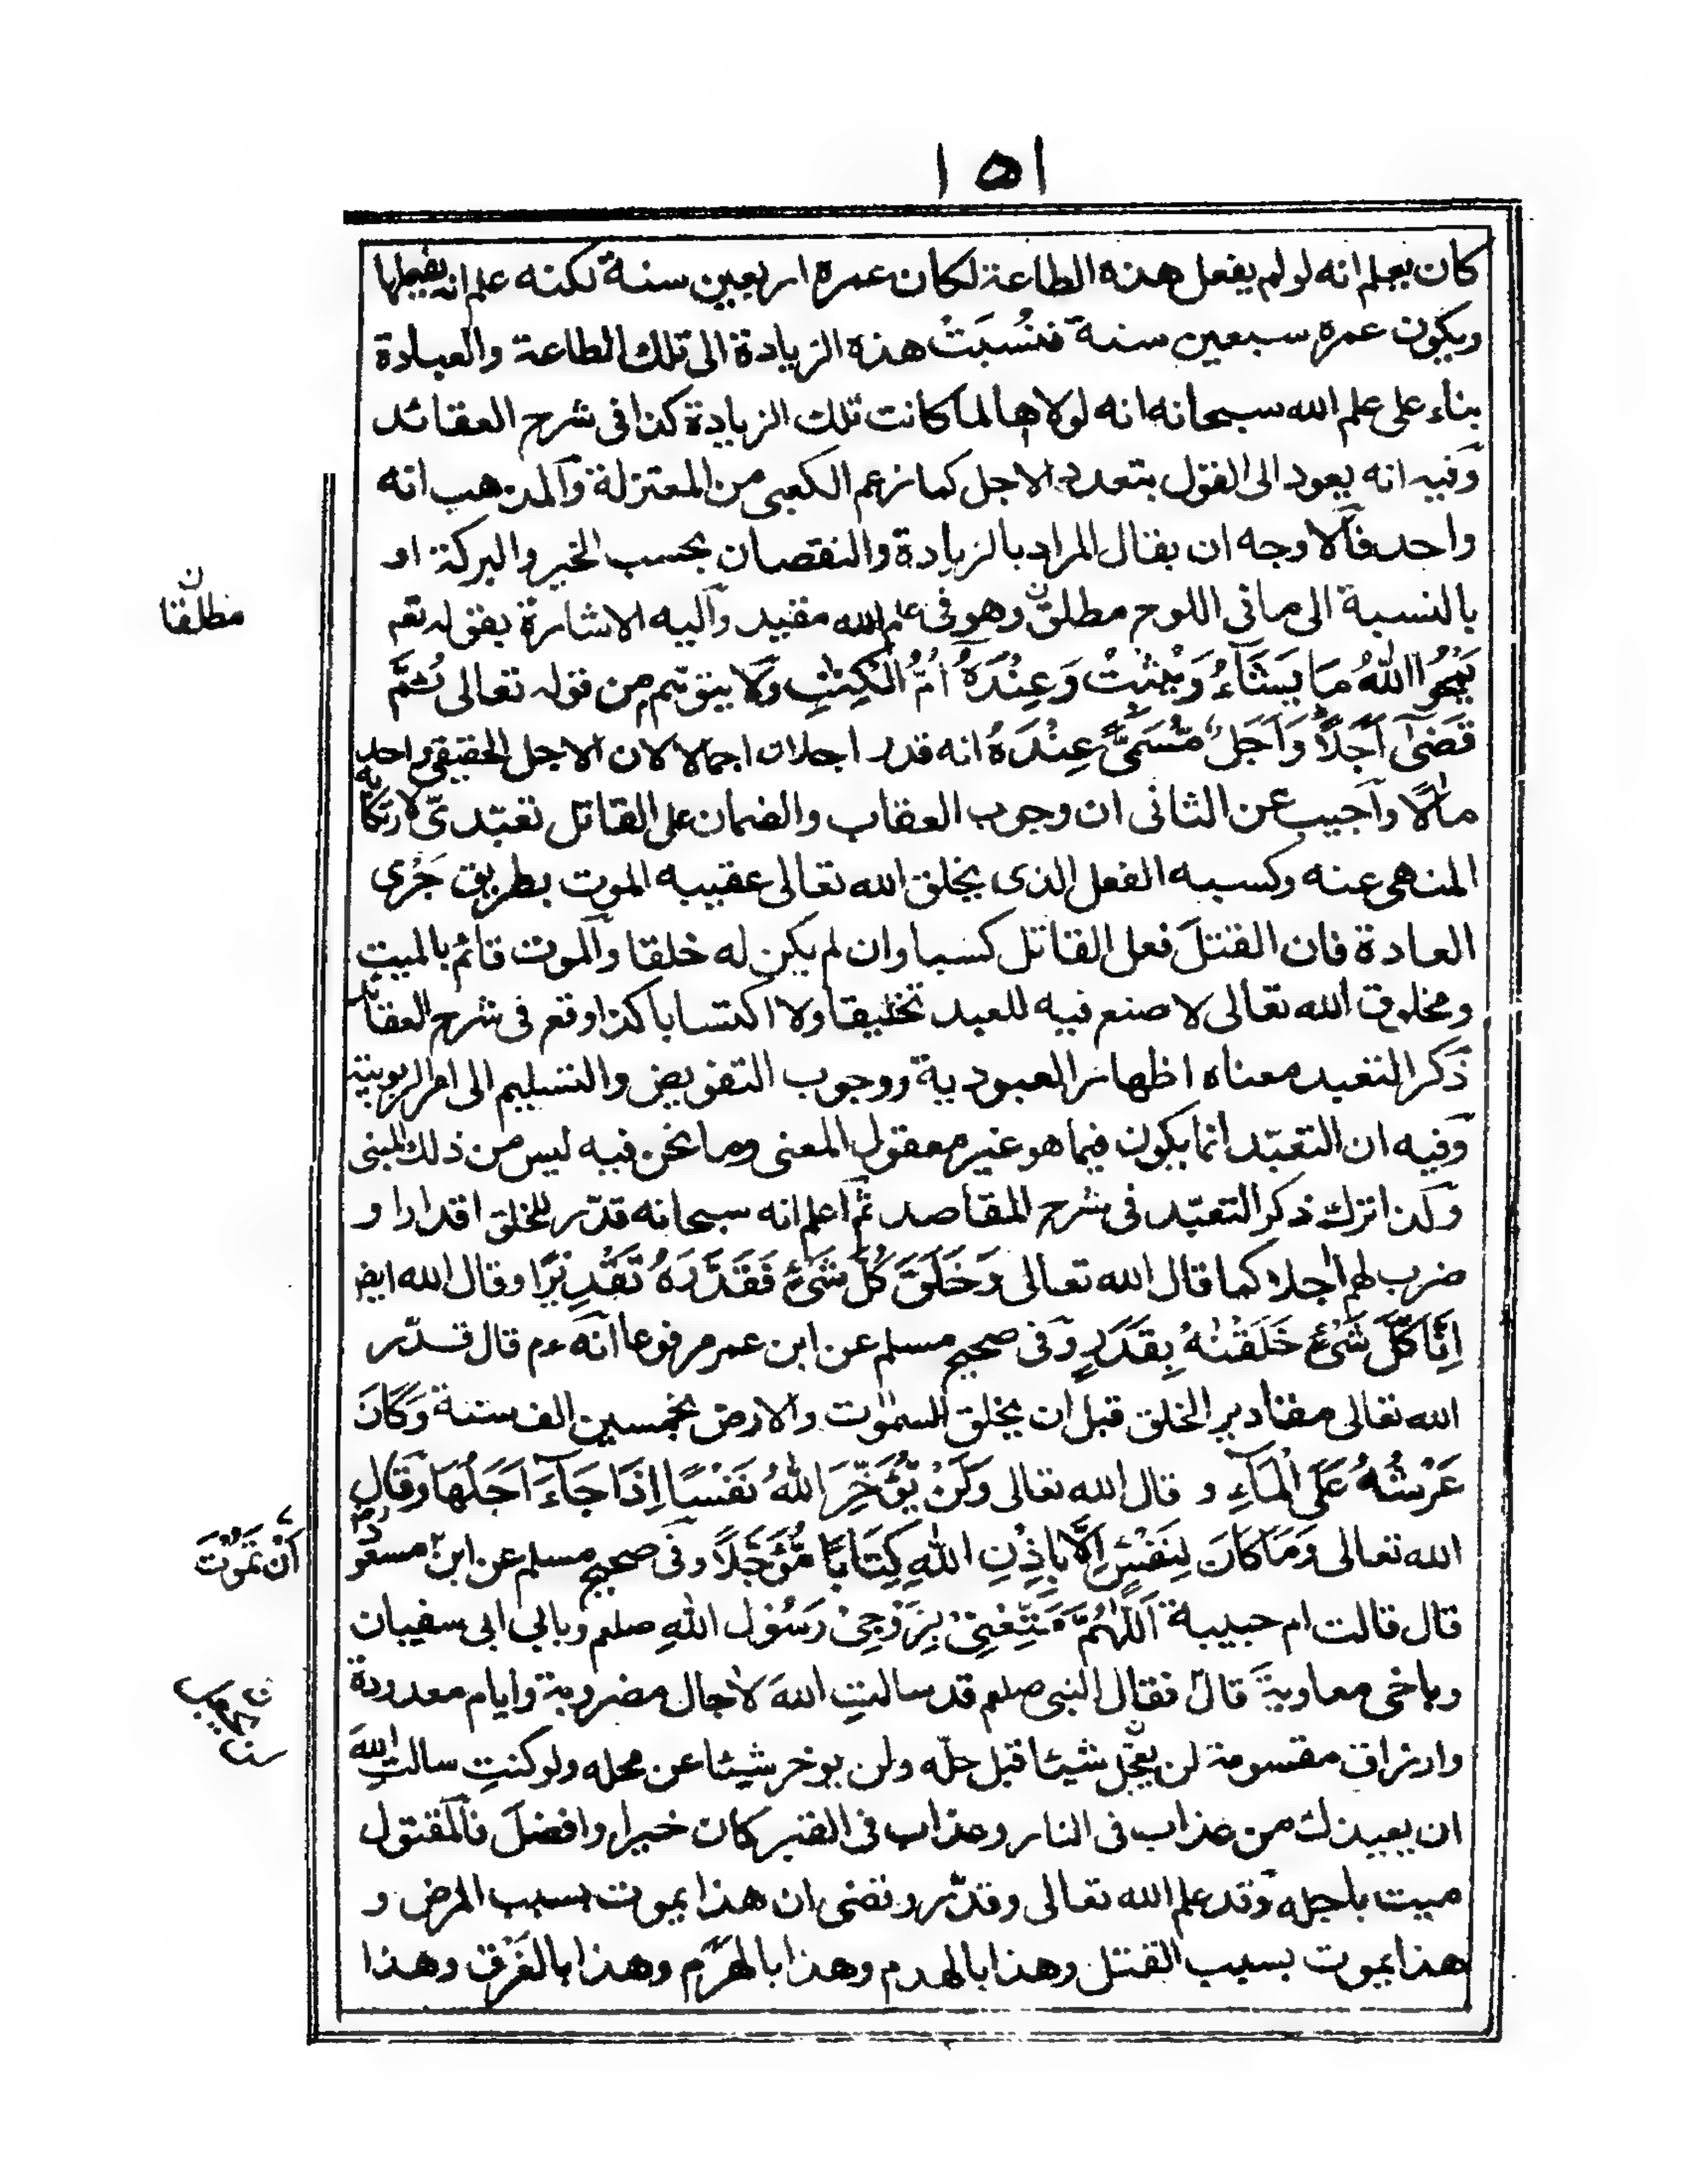 ١٥١
كان يعلم انه لو لم يفعل هذه الطاعة لكان عمره اربعين سنة لكنه علم انه يفعلها
ويكون عمره سبعين سنة فنُسبَتْ هذه الزيادة الى تلك الطاعة والعبادة
بناء على علم الله سبحانه انه لولاها لما كانت تلك الزيادة كذا فى شرح العقائد
وفيه انه يعود الى القول بتعدد الاجل كما زعم الكعبى من المعتزلة والمذهب انه
واحد فالاوجه ان يقال المراد بالزيادة والنقصان بحسب الخير والبركة او
بالنسبة الى ما فى اللوح مطلق وهو فى علم الله مقيد واليه الاشارة بقوله تعم
يَمْحُوا اللهُ مَا يَشَآءُ وَيُثْبِتُ وَعِنْدَهٗ اُمُّ الْكِتٰبِ ولا يتوهم من قوله تعالى ثُمَّ
قَضٰٓى اَجَلًا وَاَجَلٌ مُّسَمًّى عِنْدَهٗ انه قدر اجلان اجمالا لان الاجل الحقيقى واحد
مالًا واجيب عن الثانى ان وجوب العقاب والضمان على القاتل تعبّدىّ لارتكابه
المنهى عنه وكسبه الفعل الذى يخلق الله تعالى عقيبه الموت بطريق جَرْى
العادة فان القتلَ فعل القاتل كسبا وان لم يكن له خلقا والموت قائم بالميت
ومخلوق الله تعالى لا صنع فيه للعبد تخليقا ولا اكتسابا كذا وقع فى شرح العقائد
ذكر التعبد معناه اظهار العبودية ووجوب التفويض والتسليم الى امر الربوبية
وفيه ان التعبّد انما يكون فيما هو غير معقول المعنى وما نحن فيه ليس من ذلك المبنى
وكذا ترك ذكر التعبّد فى شرح المقاصد ثم اعلم انه سبحانه قدّر للخلق اقدارا و
ضرب لهم اجلا كما قال الله تعالى وَخَلَقَ كُلَّ شَىْءٍ فَقَدَّرَهٗ تَقْدِيْرًا وقال الله ايض
اِنَّا كُلَّ شَىْءٍ خَلَقْنٰهُ بِقَدَرٍ وفى صحيح مسلم عن ابن عمر مرفوعا انه ءم قال قدّر
الله تعالى مقادير الخلق قبل ان يخلق السمٰوٰت والارض بخمسين الف سنة وَكَانَ
عَرْشُهٗ عَلَى الْمَآءِ و قال الله تعالى وَلَنْ يُّؤَخِّرَ اللهُ نَفْسًا اِذَا جَآءَ اَجَلُهَا وقال
الله تعالى وَمَا كَانَ لِنَفْسٍ اِلَّا بِاِذْنِ اللهِ كِتَابًا مُّؤَجَّلًا وفى صحيح مسلم عن ابن مسعود
قال قالت ام حبيبة اَللّٰهُمَّ مَتِّعْنِىْ بِزَوْجِىْ رَسُوْلِ اللهِ صلعم وبابى ابى سفيان
وباخى معاوية قال فقال النبى صلعم قد سالتِ اللهَ لاٰجال مضروبة وايام معدودة
وارزاق مقسومة لن يعجّل شيئا قبل حلّه ولن يوخر شيئا عن محله ولو كنتِ سالتِ اللهَ
ان يعيذك من عذاب فى النار وعذاب فى القبر كان خيرا وافضلَ فالمقتول
ميت باجله وقد علم الله تعالى وقدّر وقضى ان هذا يموت بسبب المرض و
هذا يموت بسبب القتل وهذا بالهدم وهذا بالهَرَم وهذا بالغَرَق وهذا
ن
مطلقا
اَنْ تَمُوْتَ